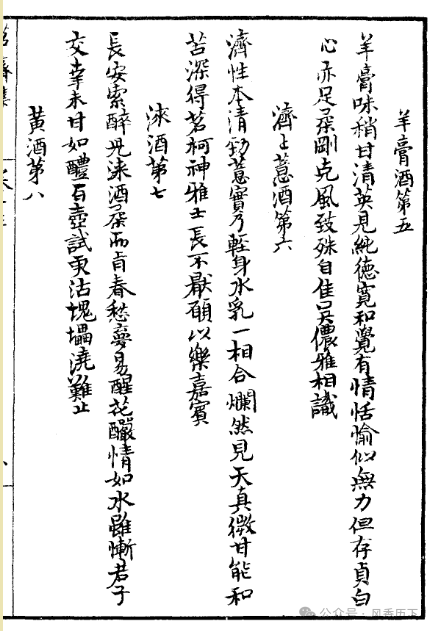 羊膏酒第五
羊膏味稍甘清英見純德寛和覺有情恬愉似無力但存貞白
心亦足柔剛克風致殊自佳吳儂雅相識
濟上薏酒第六
濟性本清釛薏實乃輕身水乳一相合爛然見天真微甘能和
苦深得茗柯神雅士長不厭願以樂嘉賓
淶酒第七
長安索醉見淶酒柔而有春愁夢易醒花釅情如水雖慚君子
交幸未甘如醴百壺試更沽塊壘澆難止
黄酒第八
公众号·风香历下